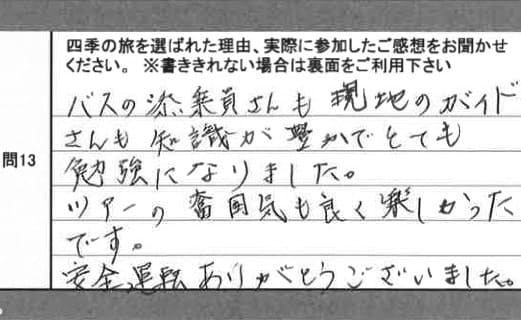 四季の旅を選ばれた理由、実際に参加したご感想をお聞かせ
ください。 ※書ききれない場合は裏面をご利用下さい
問13
バスの添乗員さんも現地のガイド
さんも知識が豊かでとても
勉強になりました。
ツアーの奮囲気も良く楽しかった
です。
安全運転ありがとうございました。